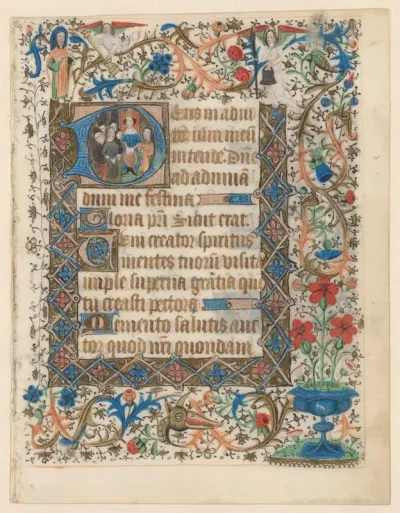 Deus in adiu
toriū meū
intende. Dñe
ad adiuuā
dum me festina
Gloria pr̄i Sicut erat.
Veni creator spiritus
mentes tuorum visita
imple superna gratia que
tu creasti pectora
Memento salutis auc
tor quod nr̄i quondam